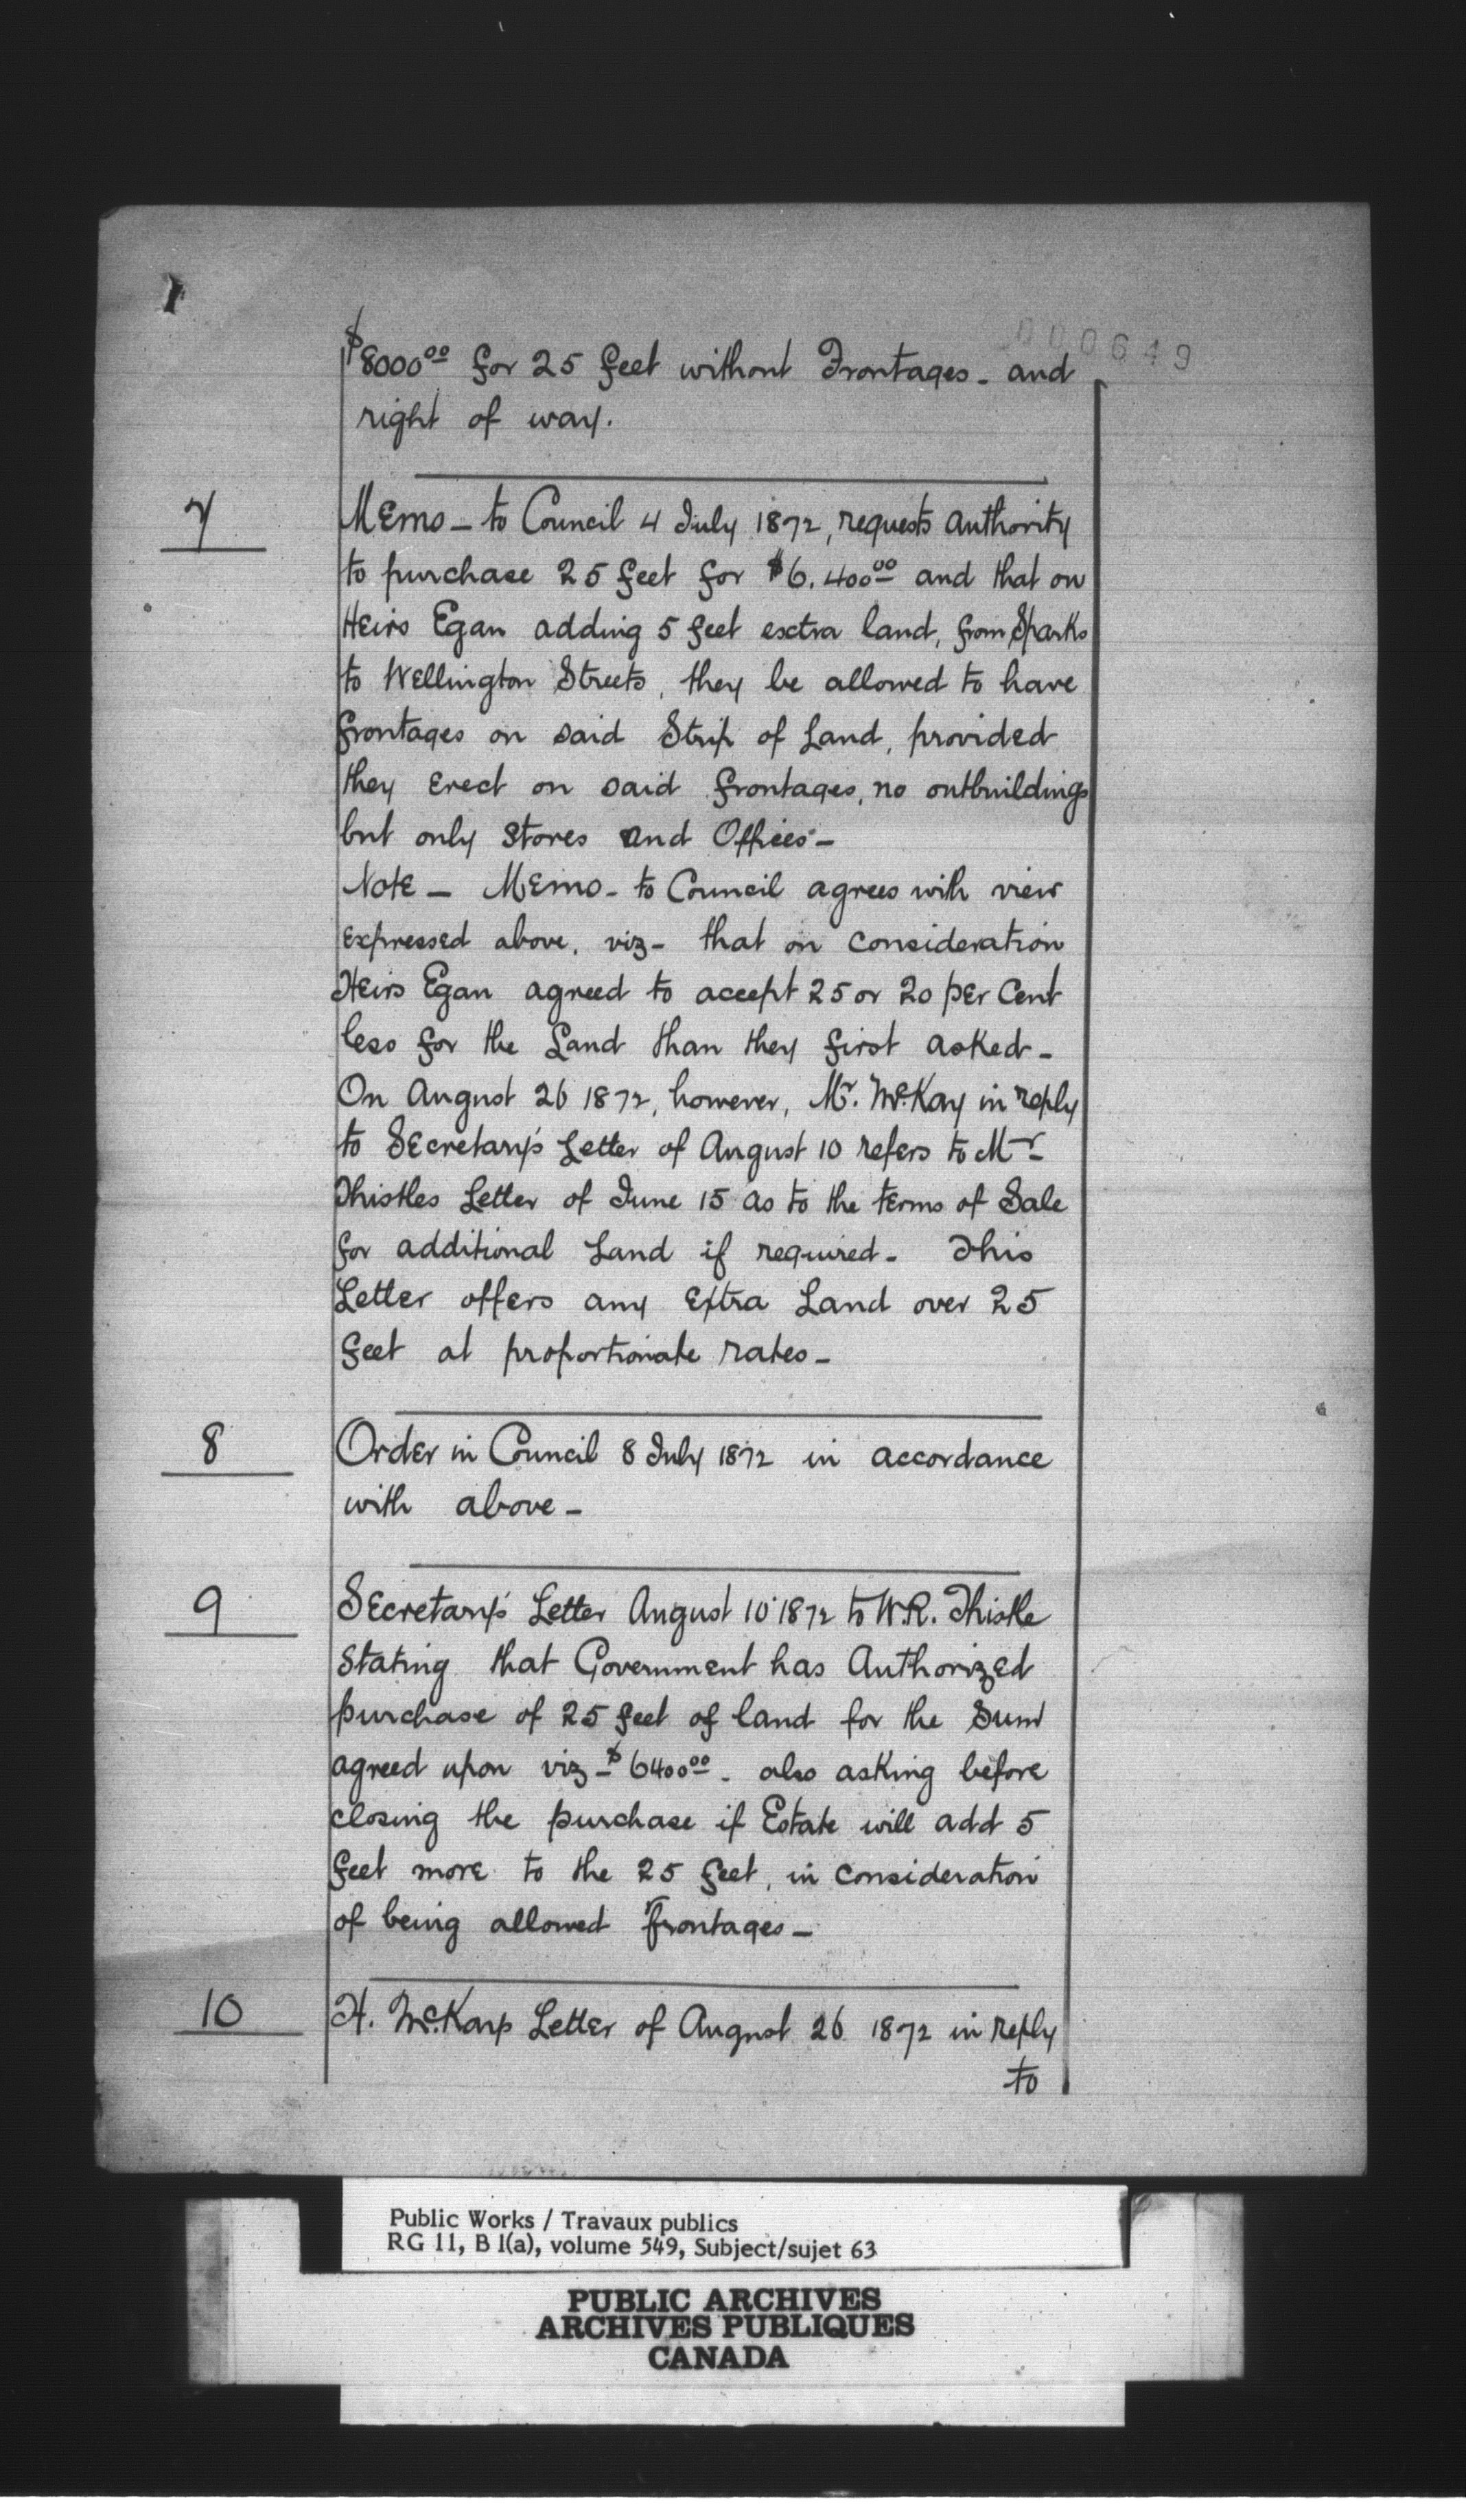 000649
$8000⁰⁰ for 25 feet without Frontages - and
right of way.
7
Memo - to Council 4 July 1872, requests authority
to purchase 25 feet for $6.400⁰⁰ and that on
Heirs Egan adding 5 feet extra land, from Sparks
to Wellington Streets, they be allowed to have
frontages on said Strip of Land, provided
they Erect on said frontages, no outbuildings
but only Stores and Offices -
Note - Memo - to Council agrees with view
expressed above, viz - that on consideration
Heirs Egan agreed to accept 25 or 20 per Cent
less for the Land than they first asked -
On August 26 1872, however, Mr. McKay in reply
to Secretary's Letter of August 10 refers to Mr
Thistles Letter of June 15 as to the terms of Sale
for additional Land if required - This
Letter offers any Extra Land over 25
feet at proportionate rates -
8
Order in Council 8 July 1872 in accordance
with above -
9
Secretary's Letter August 10 1872 to W.R. Thistle
Stating that Government has Authorized
purchase of 25 feet of land for the Sum
agreed upon viz - $6400⁰⁰ - also asking before
closing the purchase if Estate will add 5
feet more to the 25 feet, in consideration
of being allowed frontages -
10
H. McKays Letter of August 26 1872 in reply
to
Public Works / Travaux publics
RG 11, B 1(a), volume 549, Subject/sujet 63
PUBLIC ARCHIVES
ARCHIVES PUBLIQUES
CANADA